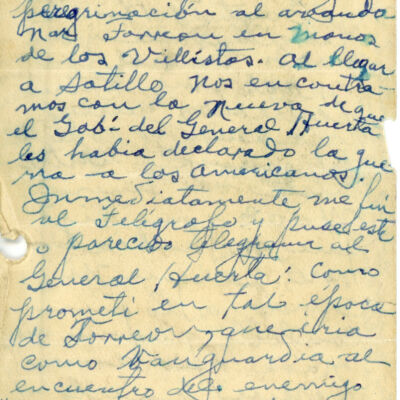 peregrinación al abando
nar Torreon en manos
de los Villistas. Al llegar
a Satillo nos encontra
mos con la nueva de que
el Gob- del General Huerta
les habia declarado la gue
rra a los americanos.
Inmediatamente me fui
al Telégrafo y puse este
o parecido Telegrama al
General Huerta: como
prometi en tal época
de Torreon, que iria
como Vanguardia al
encuentro del enemigo